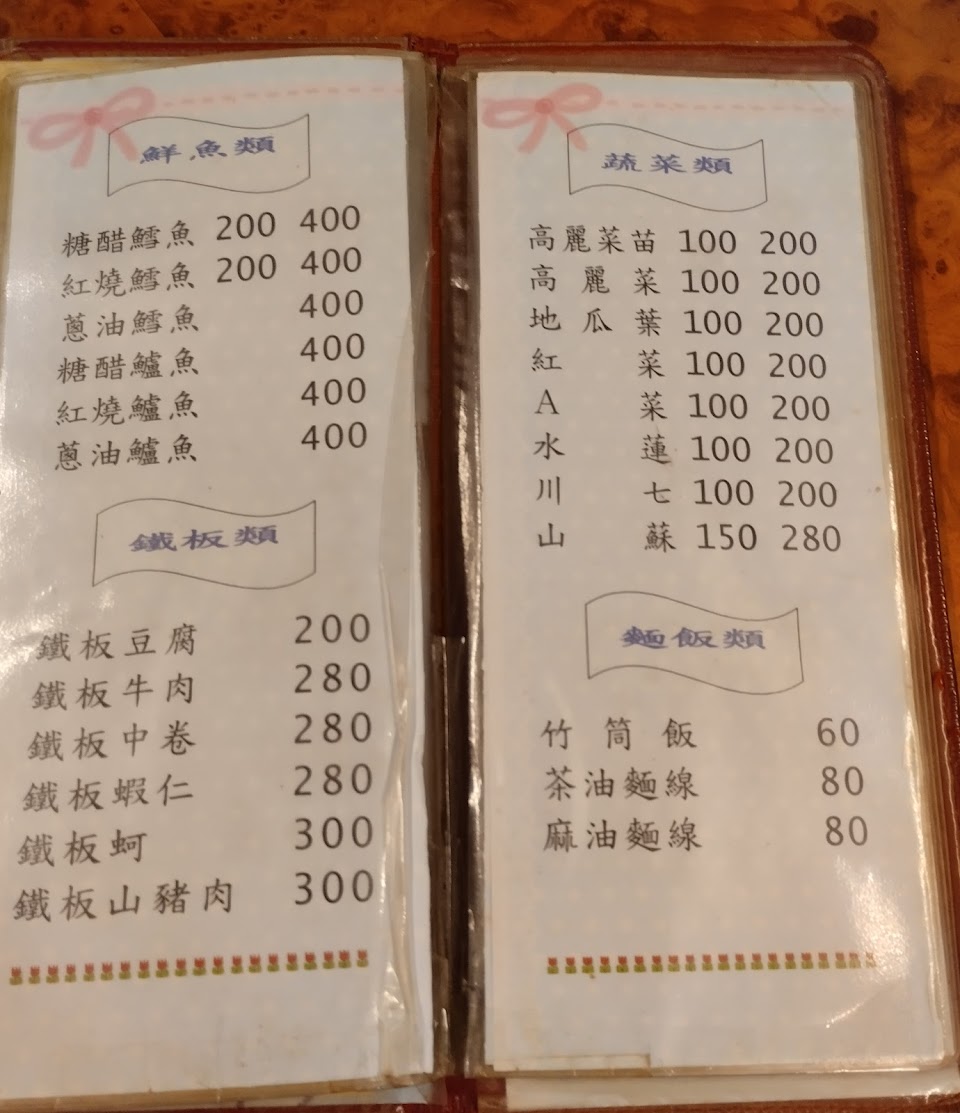 鮮魚類
糖醋鱈魚 200 400
紅燒鱈魚 200 400
蔥油鱈魚 400
糖醋鱸魚 400
紅燒鱸魚 400
蔥油鱸魚 400
鐵板類
鐵板豆腐 200
鐵板牛肉 280
鐵板中卷 280
鐵板蝦仁 280
鐵板蚵 300
鐵板山豬肉 300
蔬菜類
高麗菜苗 100 200
高麗菜 100 200
地瓜葉 100 200
紅菜 100 200
A菜 100 200
水蓮 100 200
川七 100 200
山蘇 150 280
麵飯類
竹筒飯 60
茶油麵線 80
麻油麵線 80